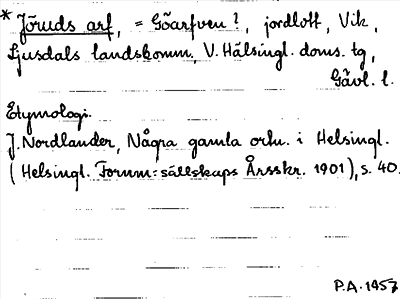 * Jöruds arf, = Göarfven?, jordlott, Vik,
Ljusdals landskomm, V. Hälsingl. doms. tg,
Gävl. l.
Etymologi.
J. Nordlander, Några gamla ortn. i Helsingl.
(Helsingl. Fornm:sällskaps Årsskr. 1901), s. 40.
P.A. 1957